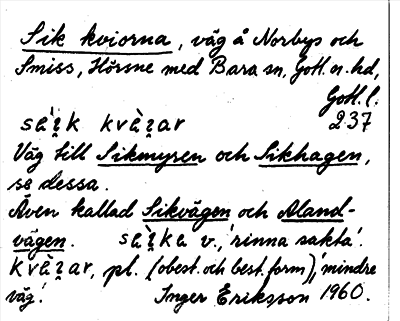 Sik kviorna, väg å Norbys och
Smiss, Hörsne med Bara sn, Gotl. n. hd,
Gotl. l.
sà̀i̯k kvὲ̀ʒar 237
Väg till Sikmyren och Sikhagen,
se dessa.
Även kallad Sikvägen och Aland-
vägen. sà̀i̯ka v., 'rinna sakta'.
kvὲ̀ʒar, pl. (obest. och best. form), 'mindre
väg'. Inger Eriksson 1960.